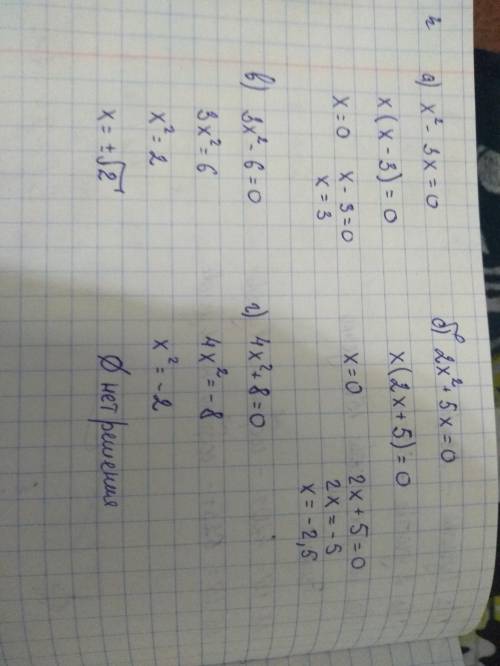 а) x² - 3x = 0
x(x - 3) = 0
x = 0 x - 3 = 0
x = 3
б) 2x² + 5x = 0
x(2x + 5) = 0
x = 0 2x + 5 = 0
2x = -5
x = -2,5
в) 3x² - 6 = 0
3x² = 6
x² = 2
x = ±√2
г) 4x² + 8 = 0
4x² = -8
x² = -2
∅ нет решения